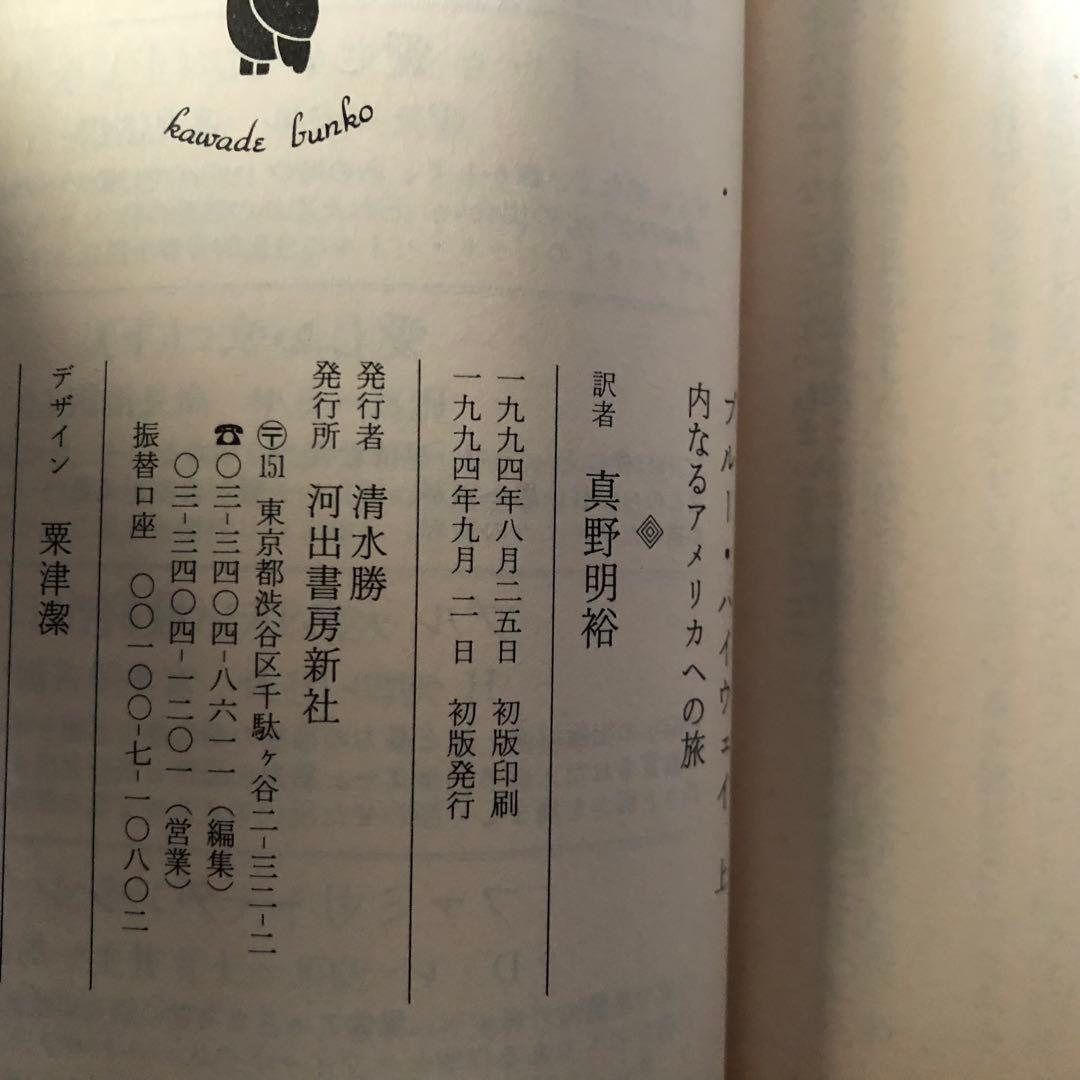 kawade bunko
ブルー・ハイウェイ 上
内なるアメリカへの旅
訳者 真野明裕
一九九四年八月二五日 初版印刷
一九九四年九月 二 日 初版発行
発行者 清水勝
発行所 河出書房新社
〒151 東京都渋谷区千駄ヶ谷二-三二-二
☎〇三-三四〇四-八六一一(編集)
〇三-三四〇四-一二〇一(営業)
振替口座 〇〇一〇〇-七-一〇八〇二
デザイン 粟津潔